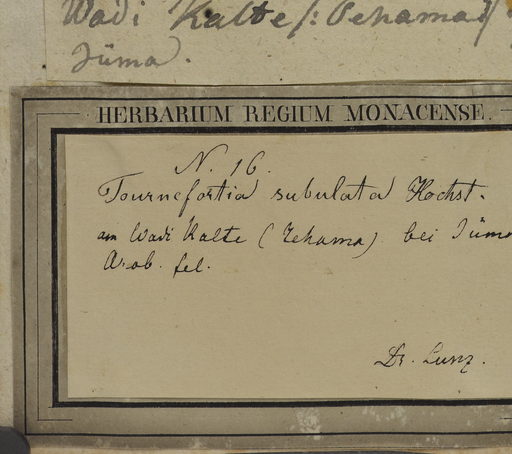 Wadi Kalte /: Tehama
Jüma.
HERBARIUM REGIUM MONACENSE.
N. 16.
Tournefortia subulata Hochst.
am Wadi Kalte (Tehama) bei Jüma
Arab. fel.
Dr. Lunz.